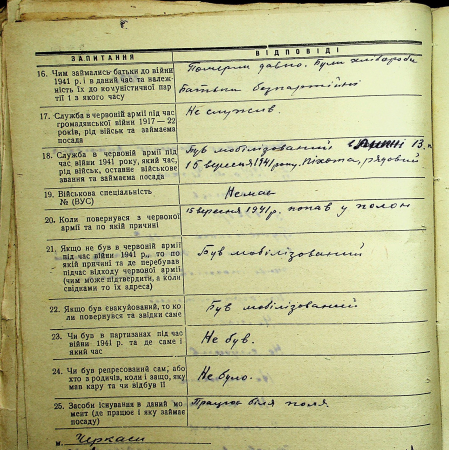 ЗАПИТАННЯ ВІДПОВІДІ
16. Чим займались батьки до війни
1941 р. і в даний час та належ-
ність їх до комуністичної пар
тії і з якого часу
Померли давно. Були хлібороби
Батьки безпартійні
17. Служба в червоній армії під час
громадянської війни 1917—22
років, рід військ та займаєма
посада
Не служив.
18. Служба в червоній армії під
час війни 1941 року, який час,
рід військ, останнє військове
звання та займаєма посада
Був мобілізований 13.
15 вересня 1941 року. Піхота, рядовий
19. Військова спеціальність
№ (ВУС)
Немає
20. Коли повернувся з червоної
армії та по якій причині
15 вересня 1941 р. попав у полон
21. Якщо не був в червоній армії
під час війни 1941 р., то по
якій причині та де перебував
підчас відходу червоної армії
(чим може підтвердити, а коли
свідками то їх адреса)
Був мобілізований
22. Якщо був евакуйований, то ко
ли повернувся та звідки саме
Був мобілізований
23. Чи був в партизанах під час
війни 1941 р. та де саме і
який час
Не був.
24. Чи був репресований сам, або
хто з родичів, коли і защо, яку
мав кару та чи відбув її
Не було.
25. Засоби існування в даний мо
мент (де працює і яку займає
посаду)
Працює біля поля.
м. Черкаси